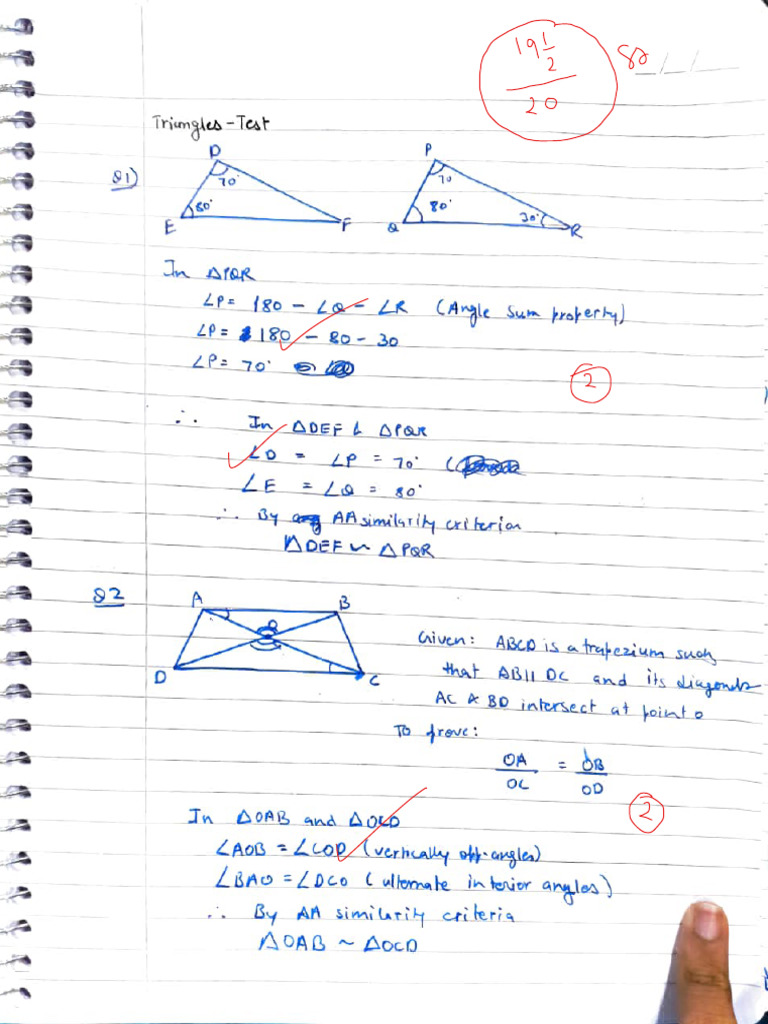 19 1/2
20
Triangles-Test
Q1)
D
70°
80°
E
F
P
70
80°
30°
Q
R
In △PQR
∠P = 180 - ∠Q - ∠R (Angle sum property)
∠P = 180 - 80 - 30
∠P = 70°
2
∴ In △DEF & △PQR
∠D = ∠P = 70° (
∠E = ∠Q = 80°
∴ By AA similarity criterion
△DEF ~ △PQR
Q2
A
B
O
D
C
Given: ABCD is a trapezium such
that AB || DC and its diagonals
AC & BD intersect at point O
To prove:
OA/OC = OB/OD
2
In △OAB and △OCD
∠AOB = ∠COD (vertically opp. angles)
∠BAO = ∠DCO (alternate interior angles)
∴ By AA similarity criteria
△OAB ~ △OCD